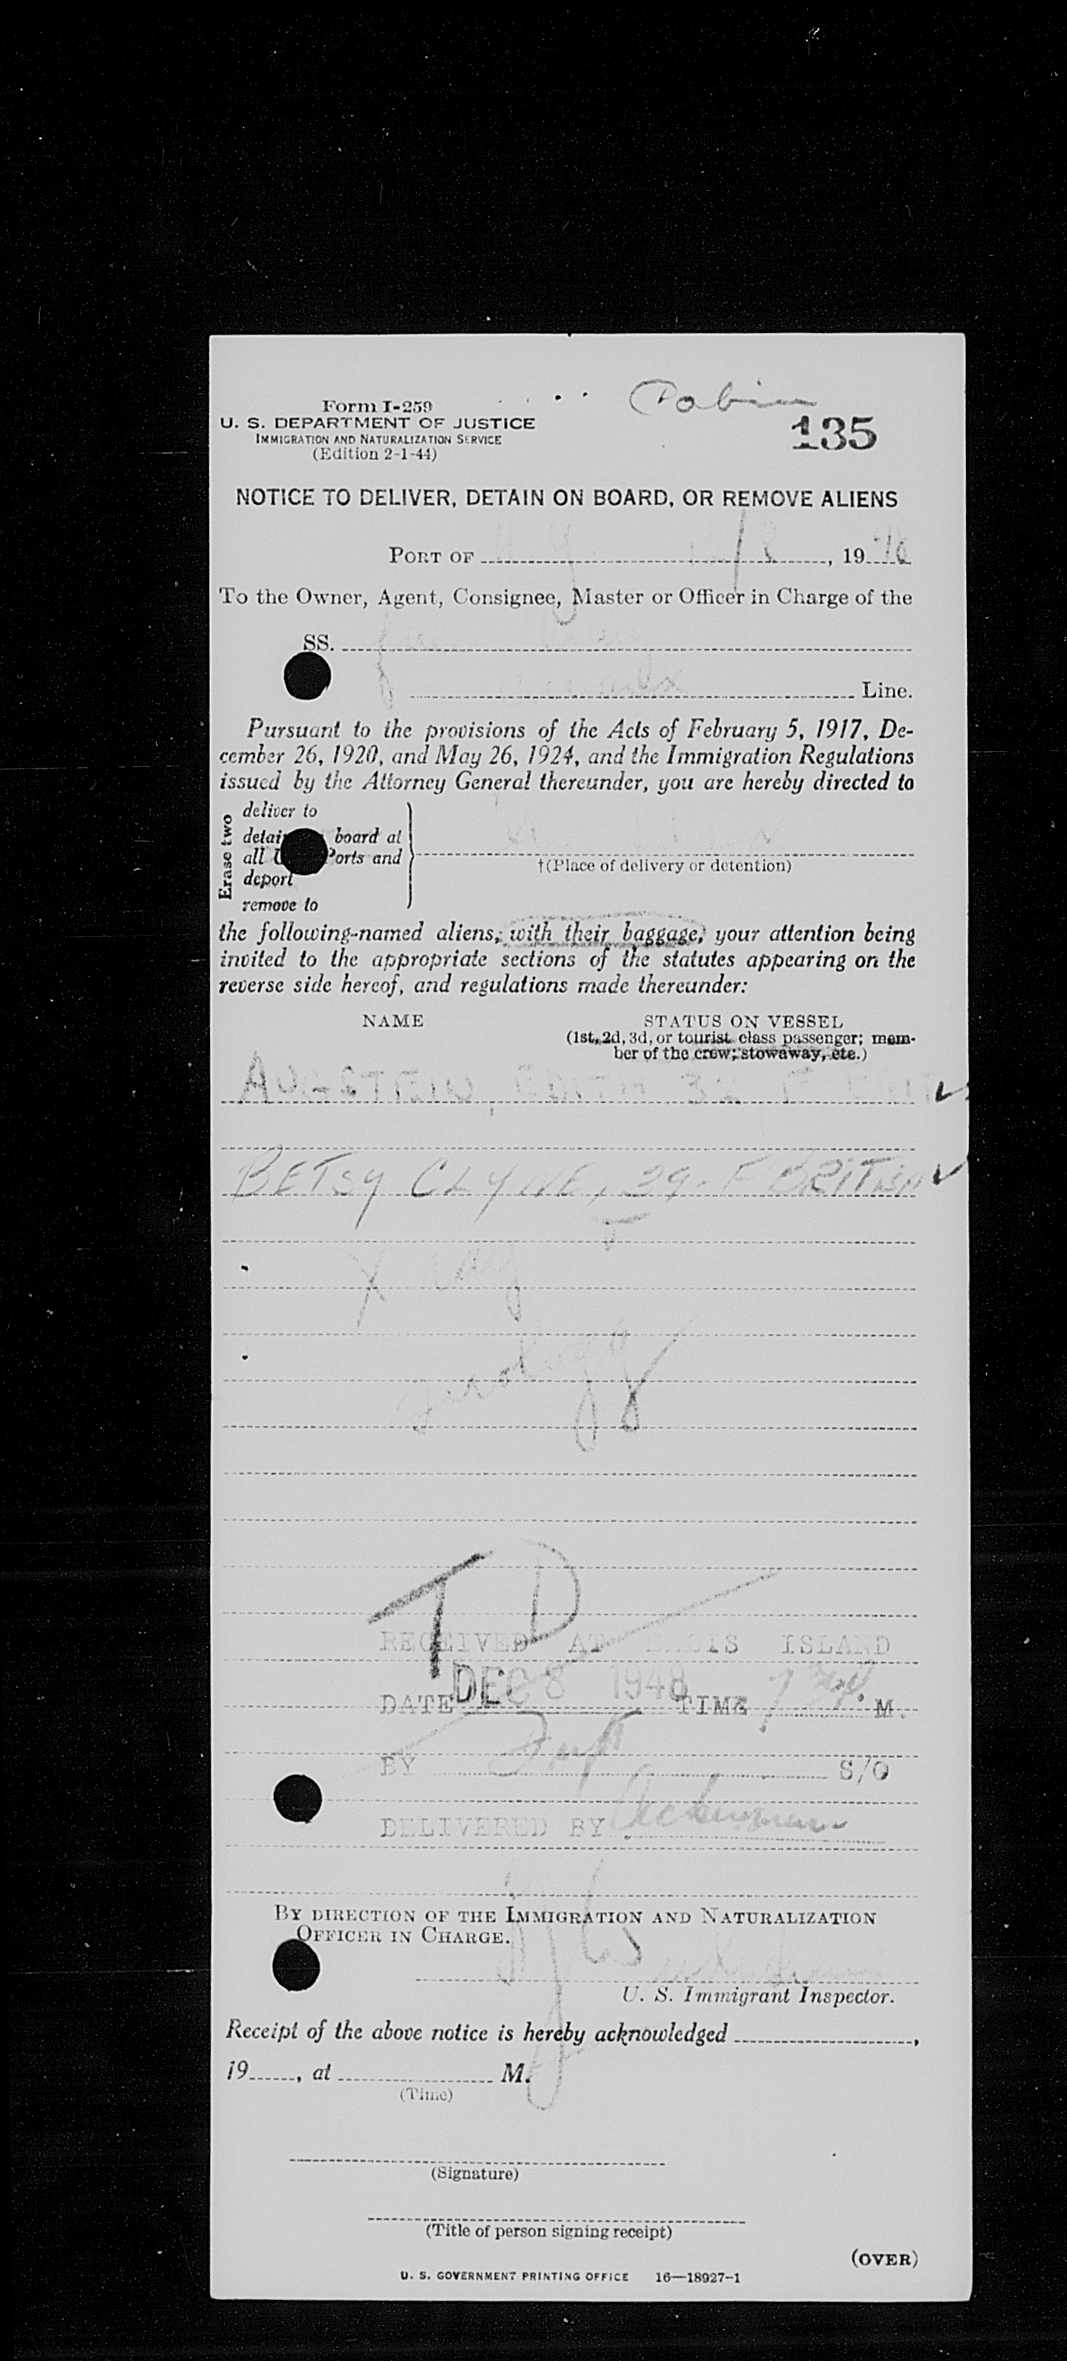 Form I-259
U. S. DEPARTMENT OF JUSTICE
IMMIGRATION AND NATURALIZATION SERVICE
(Edition 2-1-44)
Cabin
135
NOTICE TO DELIVER, DETAIN ON BOARD, OR REMOVE ALIENS
PORT OF N. Y. 12/8, 19
To the Owner, Agent, Consignee, Master or Officer in Charge of the
SS.
Line.
Pursuant to the provisions of the Acts of February 5, 1917, De-
cember 26, 1920, and May 26, 1924, and the Immigration Regulations
issued by the Attorney General thereunder, you are hereby directed to
Erase two
deliver to
detain board at
all Ports and
deport
remove to
†(Place of delivery or detention)
the following-named aliens, with their baggage, your attention being
invited to the appropriate sections of the statutes appearing on the
reverse side hereof, and regulations made thereunder:
NAME STATUS ON VESSEL
(1st, 2d, 3d, or tourist class passenger; mem-
ber of the crew; stowaway, etc.)
AUGSTEIN, 32 F ✓
BETSY CLYNE, 29 - F BRITISH ✓
X ray
serology
T D
RECEIVED AT ELLIS ISLAND
DATE DEC 8 1948 TIME M.
BY S/O
DELIVERED BY Ackerman
BY DIRECTION OF THE IMMIGRATION AND NATURALIZATION
OFFICER IN CHARGE.
U. S. Immigrant Inspector.
Receipt of the above notice is hereby acknowledged ,
19 , at M.
(Time)
(Signature)
(Title of person signing receipt)
(OVER)
U. S. GOVERNMENT PRINTING OFFICE 16—18927-1